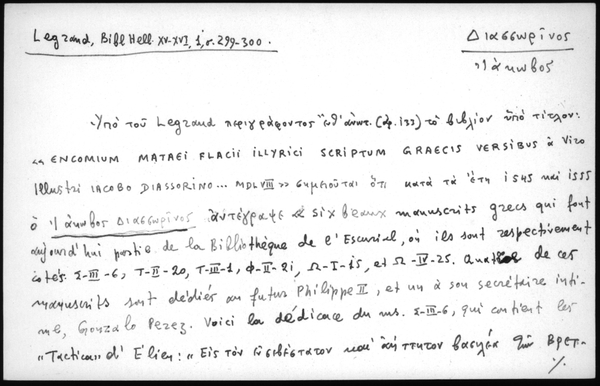 Legrand, Bibl Hell. XV-XVI, 1, σ. 299-300.
Διασσωρῖνος
Ἰάκωβος
Ὑπὸ τοῦ Legrand περιγράφοντος ἐνθ' ἀνωτ. (ἀρ. 133) τὸ βιβλίον ὑπὸ τίτλον:
« ENCOMIUM MATAEI FLACII ILLYRICI SCRIPTUM GRAECIS VERSIBUS à Viro
Illustri IACOBO DIASSORINO... MDLVIII » σημειοῦται ὅτι κατὰ τὰ ἔτη 1545 καὶ 1555
ὁ Ἰάκωβος Διασσωρῖνος ἀντέγραψε « six beaux manuscrits grecs qui font
aujourd'hui partie de la Bibliothèque de l'Escurial, où ils sont respectivement
cotés Σ-III-6, T-II-20, T-III-1, Φ-II-21, Ω-I-15, et Ω-IV-25. Quatre de ces
manuscrits sont dédiés au futur Philippe II, et un à son secrétaire inti-
me, Gonzalo Perez. Voici la dédicace du ms. Σ-III-6, qui contient les
«Tactica» d'Élien: « Εἰς τὸν εὐσεβέστατον καὶ ἀήττητον βασιλέα τῶν Βρετ-
./.